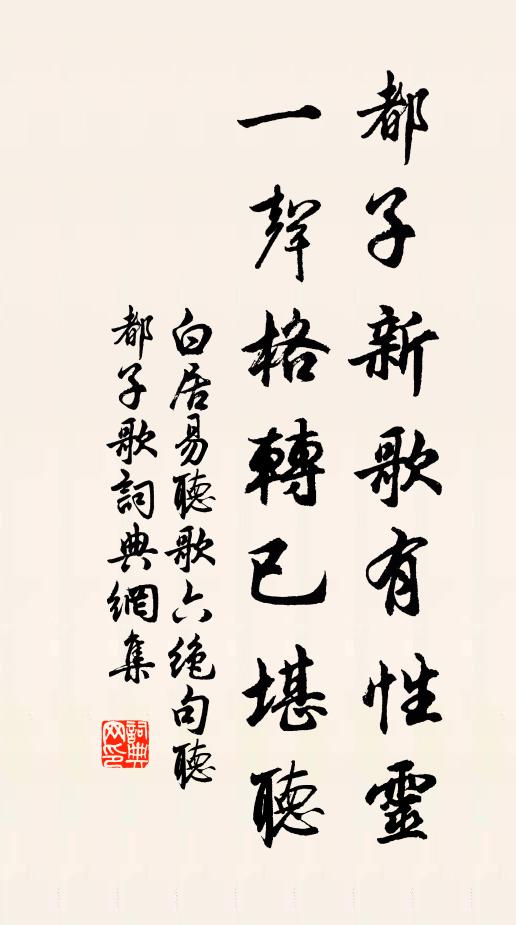 都子新歌有性靈
一聲格轉已堪聽
白居易聽歌六絕句聽
都子歌詞典網集
詞典网印